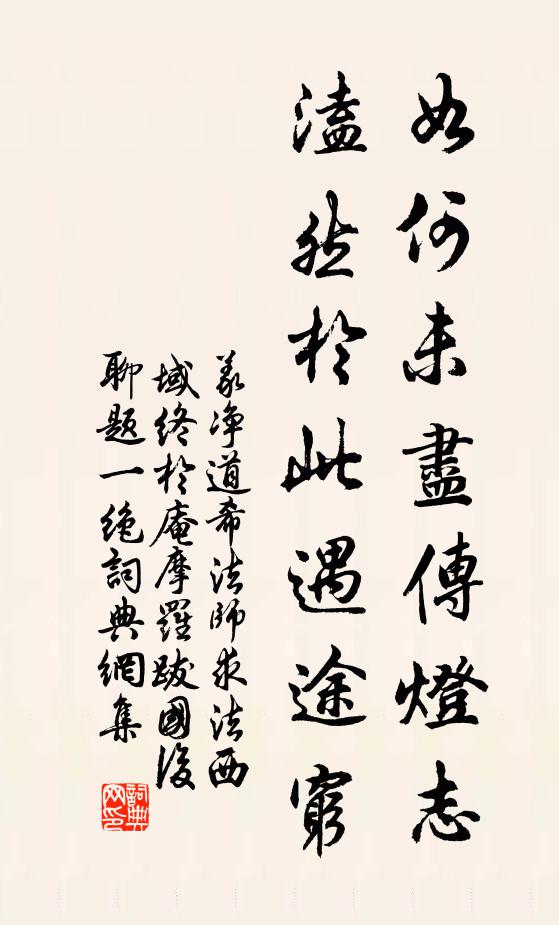 如何未盡傳燈志
溘然於此遇途窮
義淨道希法師求法西
域終於庵摩羅跋國後
聊題一絕詞典網集
詞典网印